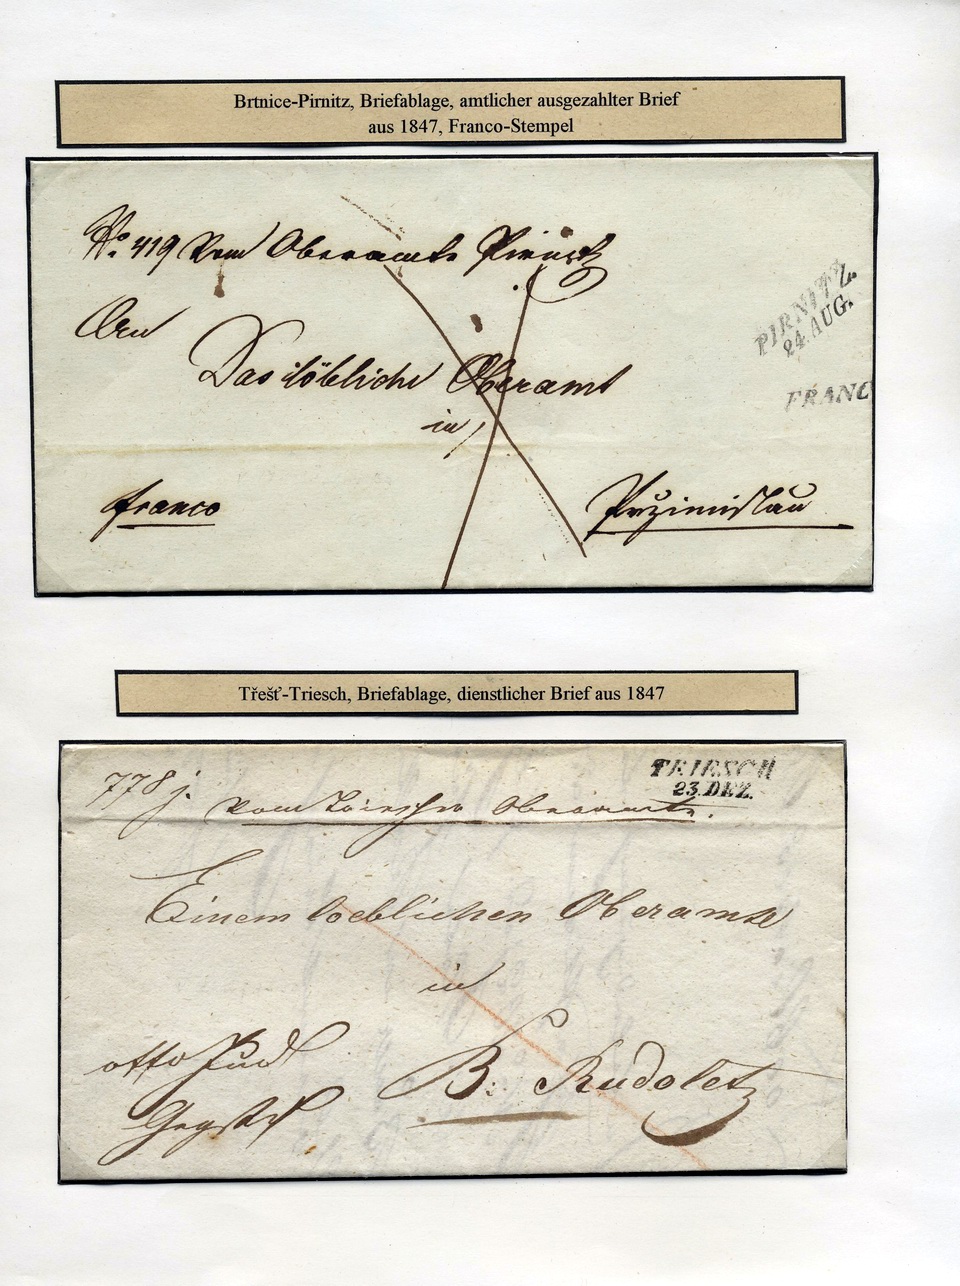 Brtnice-Pirnitz, Briefablage, amtlicher ausgezahlter Brief
aus 1847, Franco-Stempel
No. 419 Vom Oberamte Pirnitz
An
Das löbliche Oberamt
in
franco
Pržimislau
PIRNITZ.
24. AUG.
FRANC
Třešť-Triesch, Briefablage, dienstlicher Brief aus 1847
TRIESCH
23. DEZ.
778 j.
Vom Triescher Oberamte.
Einem loeblichen Oberamte
in
B: Rudoletz